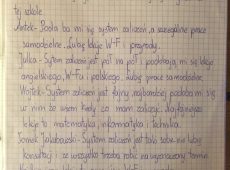 tej szkole.
Antek- Podoba mi się system zaliczeń, a szczególnie prace
samodzielne. Lubię lekcje W-F i przyrody.
Julka - System zaliczeń jest pół na pół, podobają mi się lekcje
angielskiego, W-Fu i polskiego. Lubię prace samodzielne.
Wojtek- System zaliczeń jest fajny najbardziej podoba mi się
w nim że wiem kiedy co mam zaliczyć. Najfajniejsze
lekcje to matematyka, informatyka i technika.
Tomek Jakubowski- System zaliczeń jest taki sobie, nie lubię
konsultacji i że wszystko trzeba robić na wyznaczony termin.